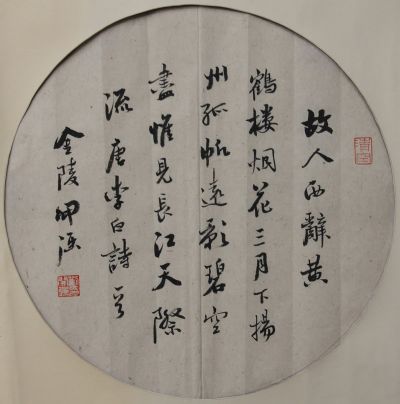 故人西辭黃
鶴樓烟花三月下揚
州孤帆遠影碧空
盡惟見長江天際
流唐李白詩
金陵